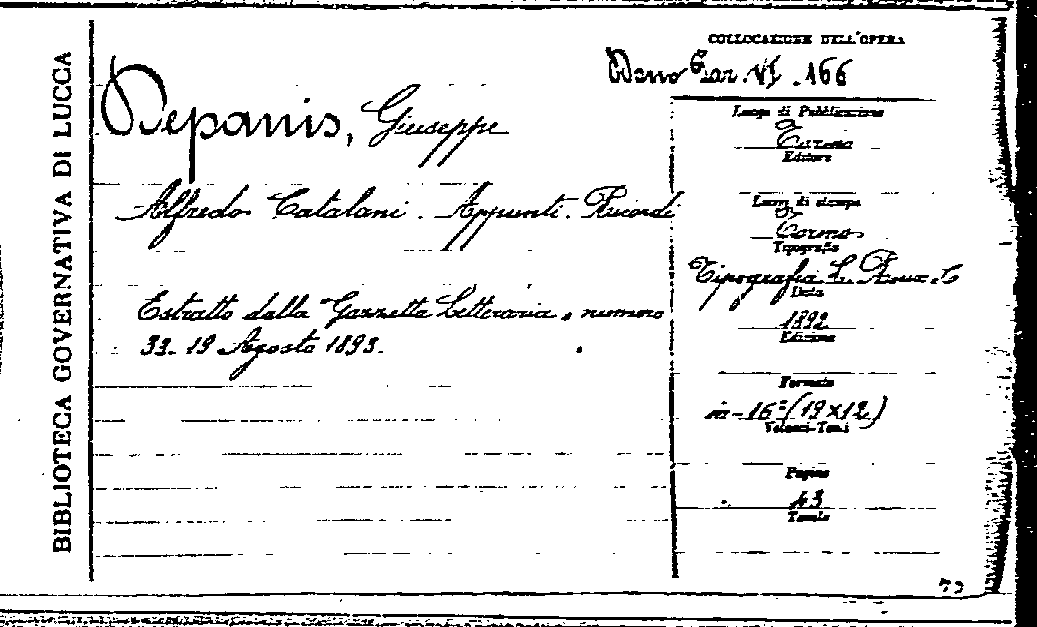 BIBLIOTECA GOVERNATIVA DI LUCCA
Depanis, Giuseppe
Alfredo Catalani. Appunti. Ricordi
Estratto dalla Gazzetta Letteraria, numero
33. 19 Agosto 1893.
COLLOCAZIONE DELL'OPERA
VI. 166
Luogo di Pubblicazione
Torino
Editore
Luogo di stampa
Torino
Tipografia
Tipografia L. Roux e C
Data
1892
Edizione
Formato
in-16º (19x12)
Volumi-Tomi
Pagine
43
Tavole